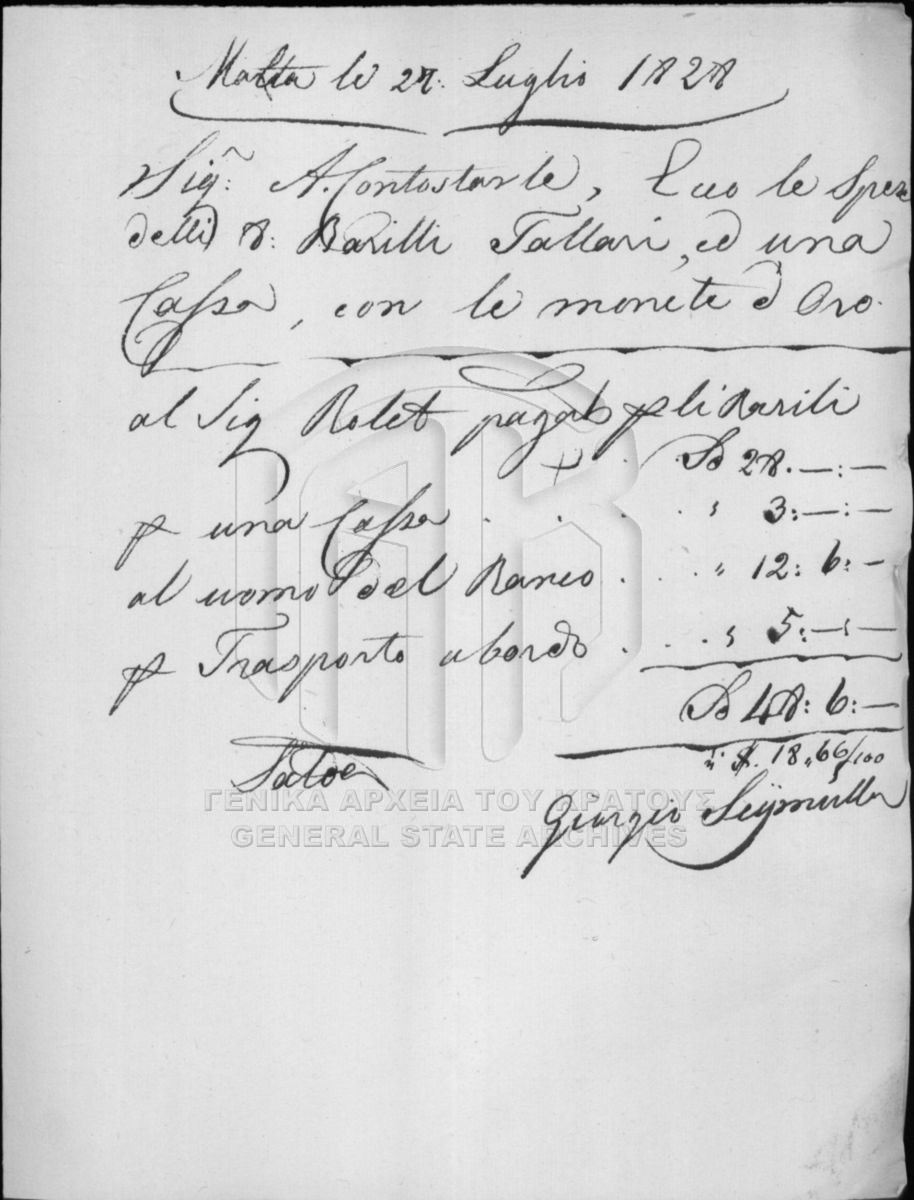 Malta le 27. Luglio 1828
Sigr: A. Contostavle, Ecco le Spese
delli 8: Barilli Tallari, ed una
Cassa, con le monete d'Oro.
al Sig Rolet pagato p li Barili
+ . Sd 28. —:—
p una Cassa . . . . " 3:—:—
al uomo del Banco . . . . " 12: 6:—
p Trasporto a bordo . . . . " 5:—:—
Sd 48: 6:—
$. 18,,66/100
Giorgio Seÿmüller
ΓΕΝΙΚΑ ΑΡΧΕΙΑ ΤΟΥ ΚΡΑΤΟΥΣ
GENERAL STATE ARCHIVES